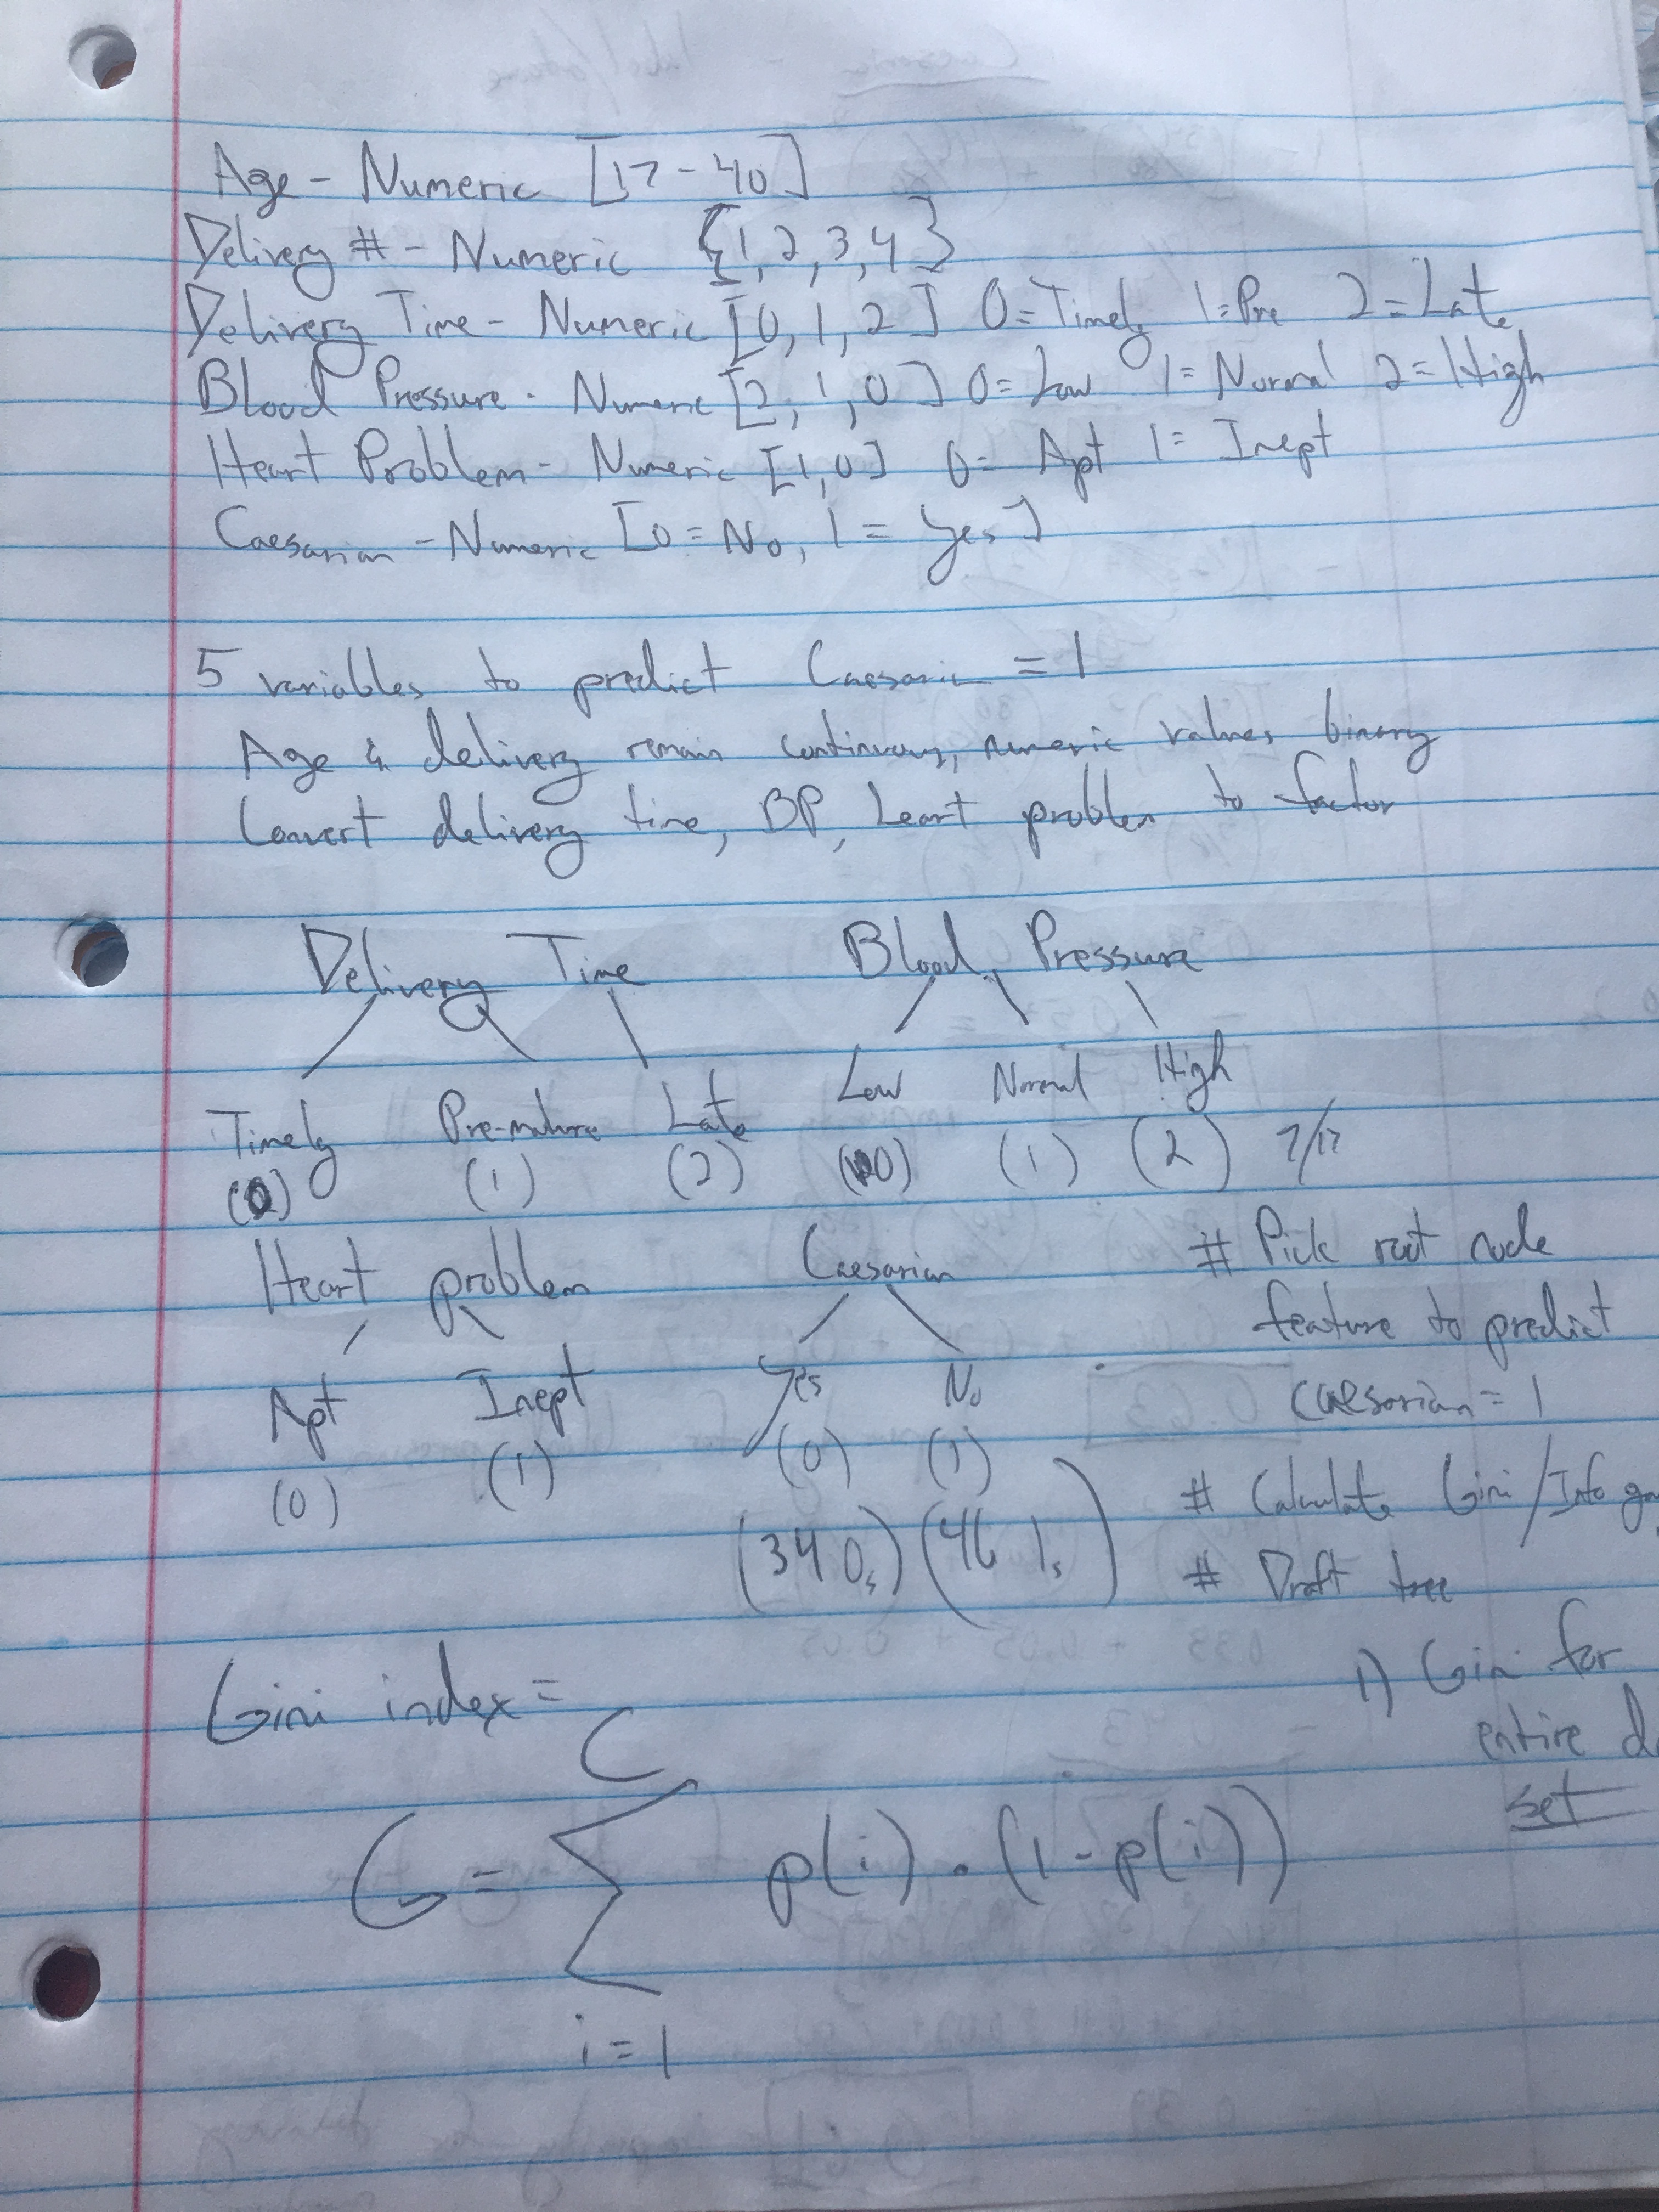 Age - Numeric [17 - 40]
Delivery # - Numeric {1, 2, 3, 4}
Delivery Time - Numeric [0, 1, 2] 0=Timely 1=Pre 2=Late
Blood Pressure - Numeric [2, 1, 0] 0=Low 1=Normal 2=High
Heart Problem - Numeric [1, 0] 0= Apt 1= Inept
Caesarian - Numeric [0=No, 1= Yes]
5 variables to predict Caesarian = 1
Age & delivery remain continuous, numeric values binary
Convert delivery time, BP, heart problem to factor
Delivery Time Blood Pressure
Timely Pre-mature Late Low Normal High
(0) (1) (2) (0) (1) (2) 7/17
Heart problem Caesarian # Pick root node
feature to predict
Apt Inept Yes No caesarian = 1
(0) (1) (0) (1)
(34 0s) (46 1s) # Calculate Gini/Info
# Draft tree
Gini index = 1) Gini for
entire
set
C
G = Σ p(i) · (1 - p(i))
i = 1